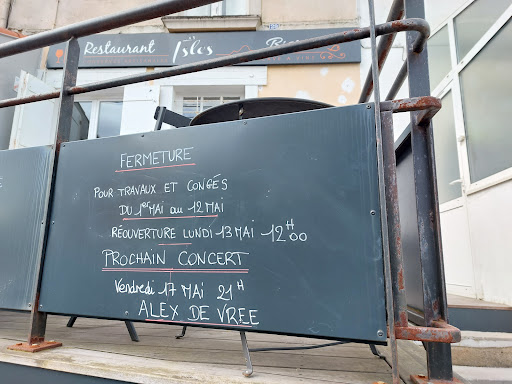 Restaurant
Isles
FERMETURE
POUR TRAVAUX ET CONGÉS
DU 1er MAI au 12 MAI
RÉOUVERTURE LUNDI 13 MAI 12H00
PROCHAIN CONCERT
Vendredi 17 MAI 21H
ALEX DE VREE